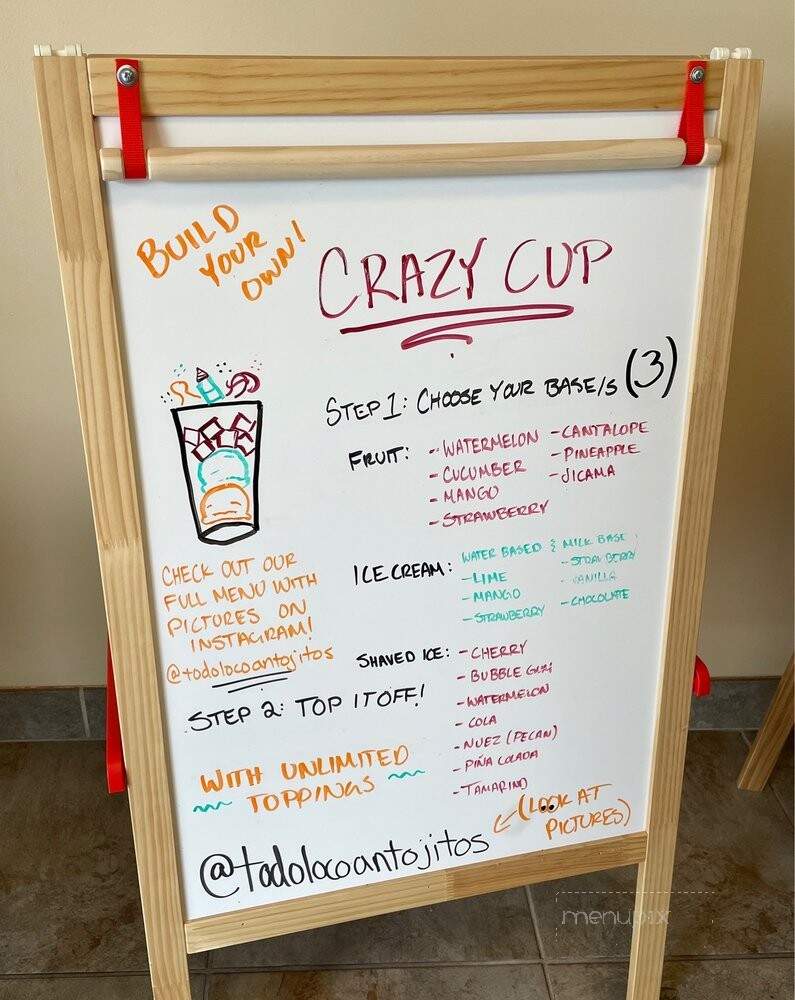 BUILD
YOUR
OWN!
CRAZY CUP
STEP 1: CHOOSE YOUR BASE/S (3)
FRUIT:
- WATERMELON
- CUCUMBER
- MANGO
- STRAWBERRY
- CANTALOPE
- PINEAPPLE
- JICAMA
ICE CREAM:
WATER BASED & MILK BASE
- LIME
- MANGO
- STRAWBERRY
- STRAWBERRY
- VANILLA
- CHOCOLATE
SHAVED ICE:
- CHERRY
- BUBBLE GUM
- WATERMELON
- COLA
- NUEZ (PECAN)
- PIÑA COLADA
- TAMARIND
CHECK OUT OUR
FULL MENU WITH
PICTURES ON
INSTAGRAM!
@todolocoantojitos
STEP 2: TOP IT OFF!
WITH UNLIMITED
TOPPINGS
(LOOK AT
PICTURES)
@todolocoantojitos
menupix